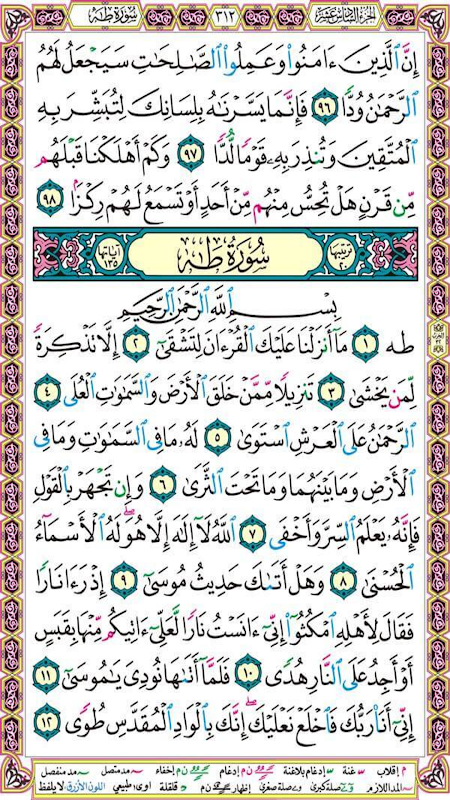 سُورَةُ طه
٣١٢
الجزء السادس عشر
إِنَّ ٱلَّذِينَ ءَامَنُواْ وَعَمِلُواْ ٱلصَّٰلِحَٰتِ سَيَجْعَلُ لَهُمُ
ٱلرَّحْمَٰنُ وُدًّا ٩٦ فَإِنَّمَا يَسَّرْنَٰهُ بِلِسَانِكَ لِتُبَشِّرَ بِهِ
ٱلْمُتَّقِينَ وَتُنذِرَ بِهِۦ قَوْمًا لُّدًّا ٩٧ وَكَمْ أَهْلَكْنَا قَبْلَهُم
مِّن قَرْنٍ هَلْ تُحِسُّ مِنْهُم مِّنْ أَحَدٍ أَوْ تَسْمَعُ لَهُمْ رِكْزَۢا ٩٨
ترتيبها ٢٠ سُورَةُ طه آياتها ١٣٥
بِسْمِ ٱللَّهِ ٱلرَّحْمَٰنِ ٱلرَّحِيمِ
طه ١ مَآ أَنزَلْنَا عَلَيْكَ ٱلْقُرْءَانَ لِتَشْقَىٰٓ ٢ إِلَّا تَذْكِرَةً
لِّمَن يَخْشَىٰ ٣ تَنزِيلًا مِّمَّنْ خَلَقَ ٱلْأَرْضَ وَٱلسَّمَٰوَٰتِ ٱلْعُلَى ٤
ٱلرَّحْمَٰنُ عَلَى ٱلْعَرْشِ ٱسْتَوَىٰ ٥ لَهُۥ مَا فِى ٱلسَّمَٰوَٰتِ وَمَا فِى
ٱلْأَرْضِ وَمَا بَيْنَهُمَا وَمَا تَحْتَ ٱلثَّرَىٰ ٦ وَإِن تَجْهَرْ بِٱلْقَوْلِ
فَإِنَّهُۥ يَعْلَمُ ٱلسِّرَّ وَأَخْفَى ٧ ٱللَّهُ لَآ إِلَٰهَ إِلَّا هُوَ ۖ لَهُ ٱلْأَسْمَآءُ
ٱلْحُسْنَىٰ ٨ وَهَلْ أَتَىٰكَ حَدِيثُ مُوسَىٰٓ ٩ إِذْ رَءَا نَارًا
فَقَالَ لِأَهْلِهِ ٱمْكُثُوٓاْ إِنِّىٓ ءَانَسْتُ نَارًا لَّعَلِّىٓ ءَاتِيكُم مِّنْهَا بِقَبَسٍ
أَوْ أَجِدُ عَلَى ٱلنَّارِ هُدًى ١٠ فَلَمَّآ أَتَىٰهَا نُودِىَ يَٰمُوسَىٰٓ ١١
إِنِّىٓ أَنَا۠ رَبُّكَ فَٱخْلَعْ نَعْلَيْكَ ۖ إِنَّكَ بِٱلْوَادِ ٱلْمُقَدَّسِ طُوًى ١٢
م إقلاب غنة إدغام بلاغنة ن م إدغام ن م إخفاء مد متصل مد منفصل
المد اللازم صلة كبرى وے صلة صغرى إظهار ن م قلقلة اوى: طبيعي اللون الأزرق: لا يلفظ